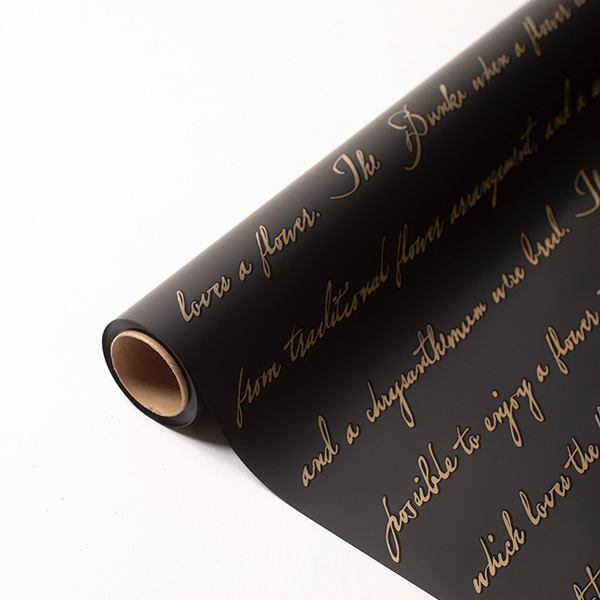 loves a flower. The Dunka when a flower a
from traditional flower arrangement, and a
and a chrysanthemum were bred. Th
possible to enjoy a flower
which loves the